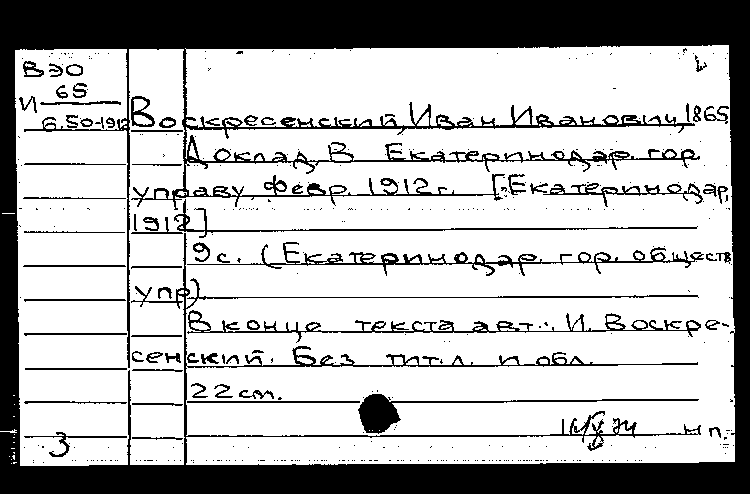 ВЭО
65
И
6.50-1912 Воскресенский, Иван Иванович, 1865
Доклад В Екатеринодар. гор.
управу. Февр. 1912г. [Екатеринодар,
1912]
9с. (Екатеринодар. гор. обществ
упр).
В конце текста авт.: И. Воскре-
сенский. Без тит. л. и обл.
22 см.
3
нп.